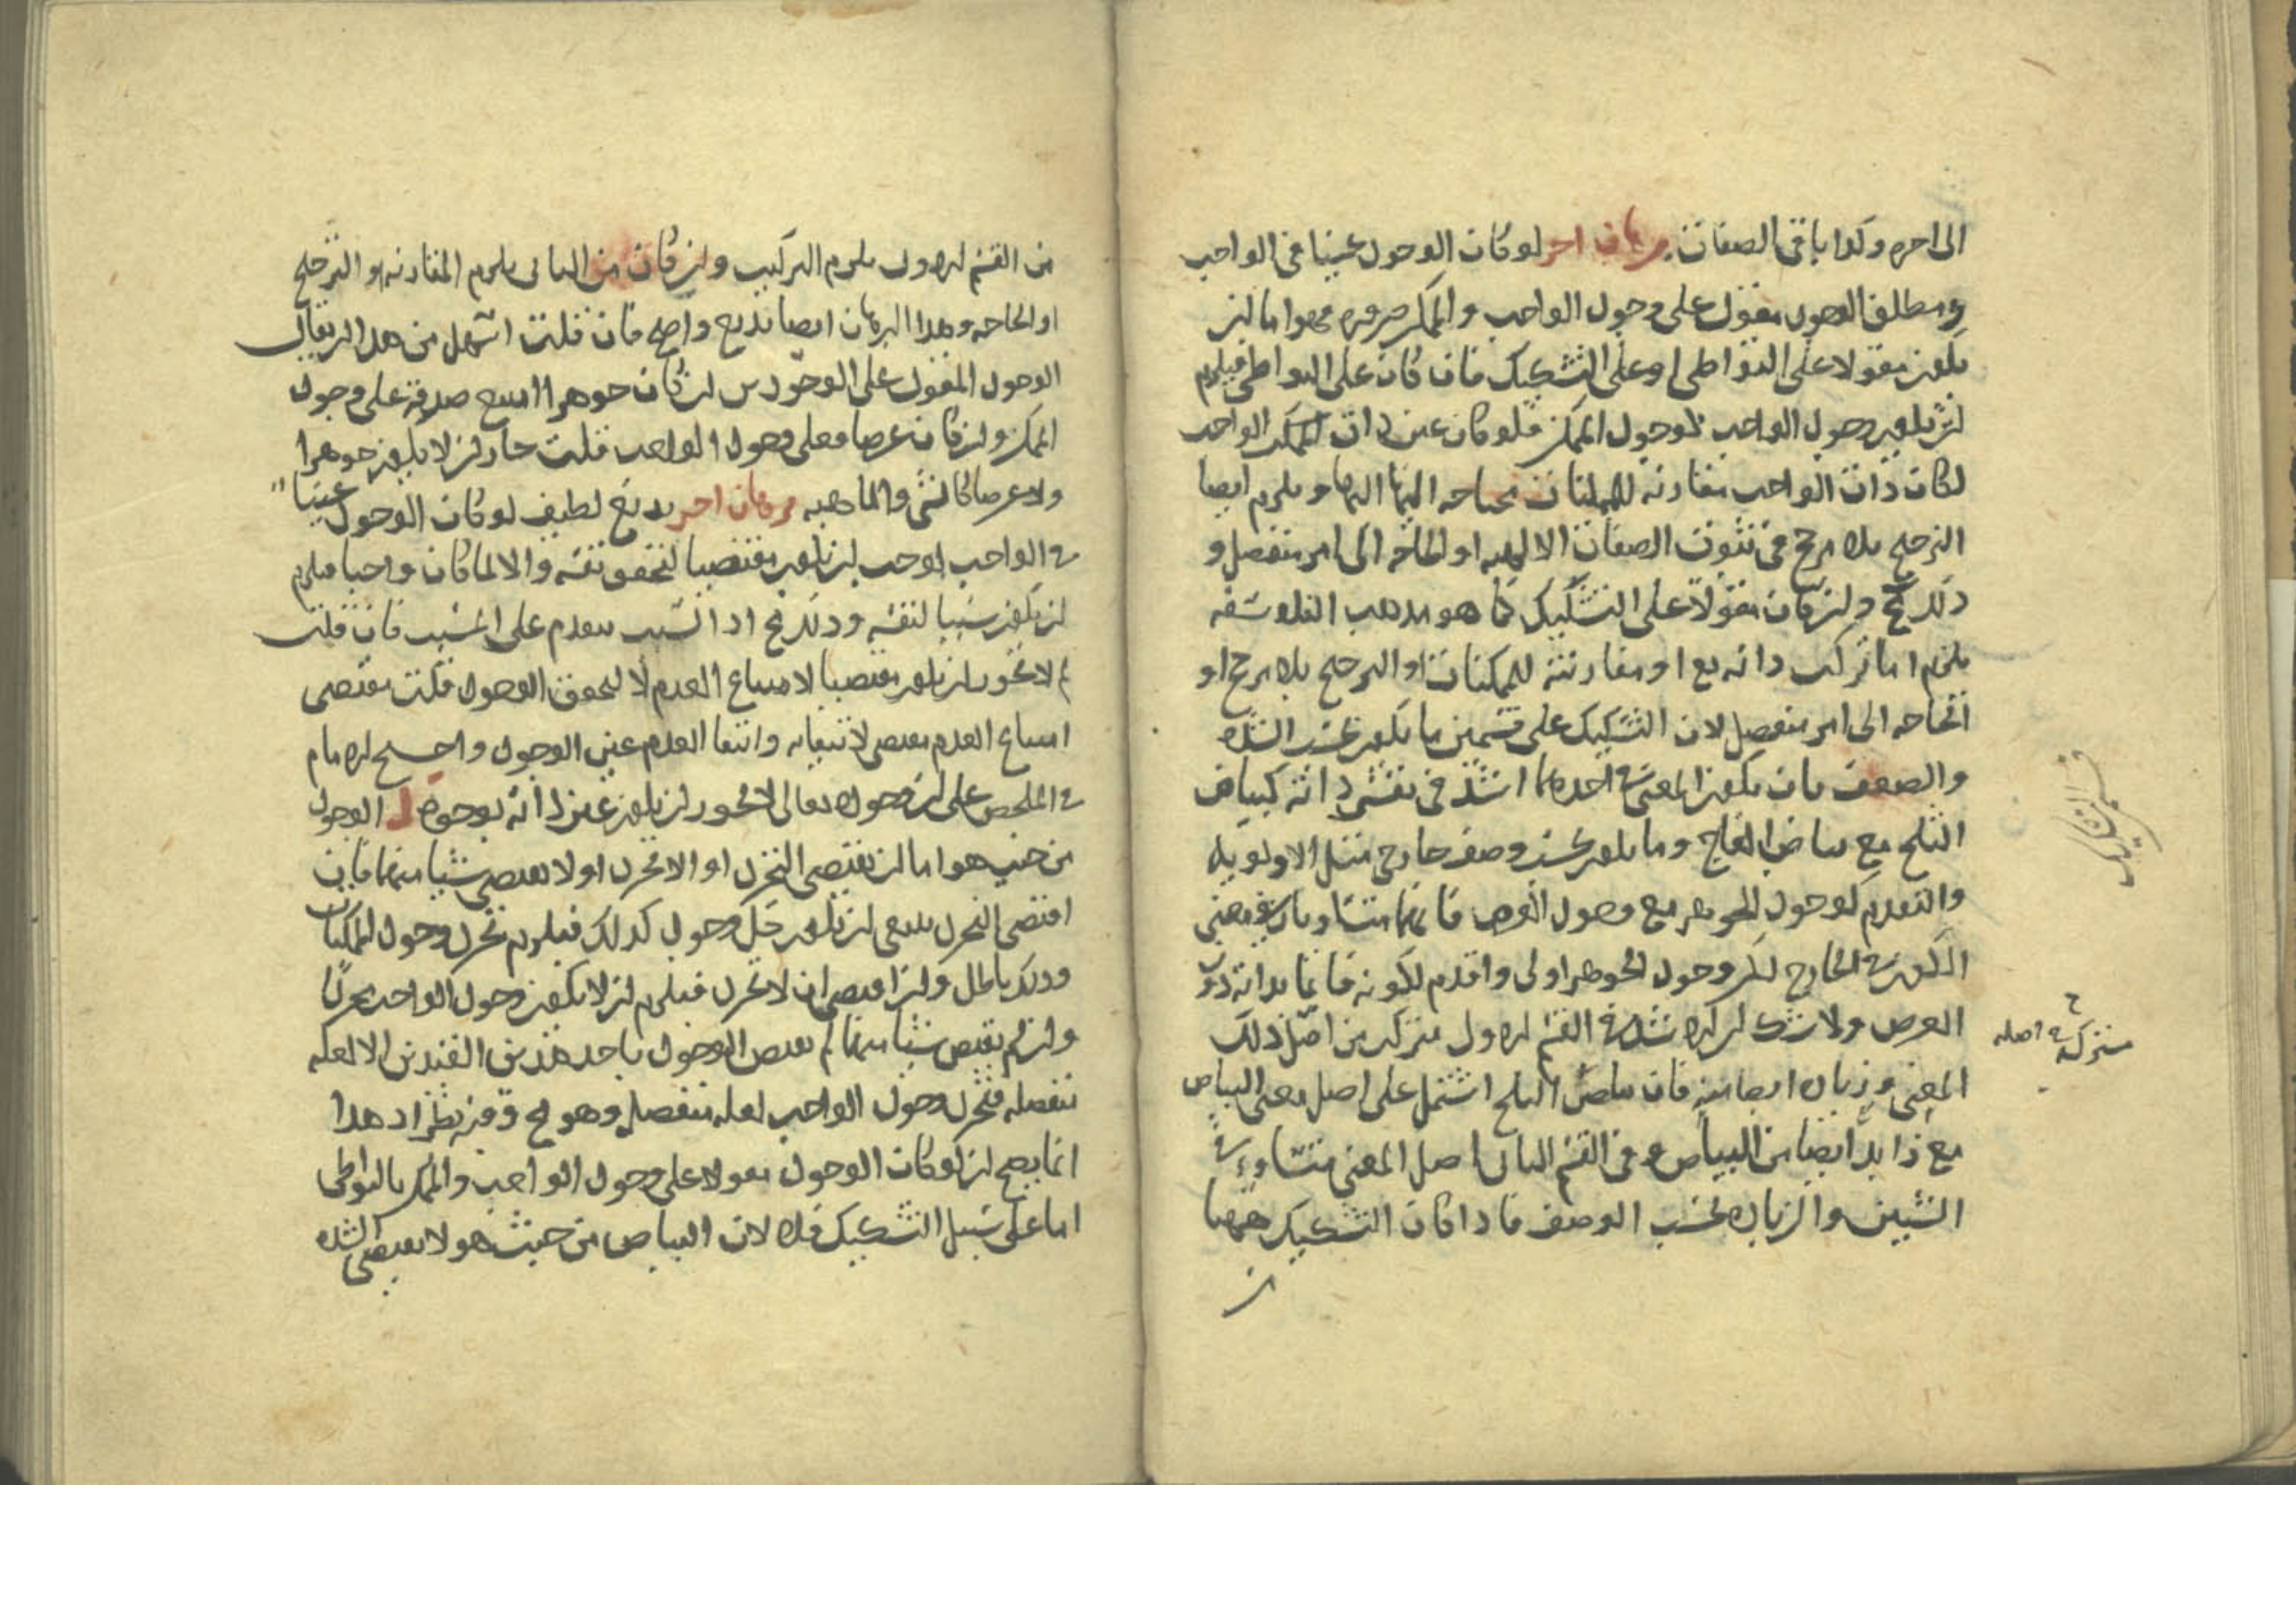 الى اخره وكذا باقى الصفات برهان اخر لو كان الوجود عينا فى الواجب
ومطلق الوجود مقول على وجود الواجب والممكن ضروره فهو اما ان
يكون مقولا على التواطى او على التشكيك فان كان على التواطى فيلزم
ان يكون وجود الواجب كوجود الممكن فلو كان عين ذات الواجب
لكانت ذات الواجب مقارنه للممكنات محتاجه اليها ويلزم ايضا
الترجيح بلا مرجح فى ثبوت الصفات الالهيه او الحاجه الى امر منفصل و
ذلك مح وان كان مقولا على التشكيك كما هو مذهب الفلاسفه
يلزم اما تركب ذاته تع او مقارنته للممكنات او الترجيح بلا مرجح او
الحاجه الى امر منفصل لان التشكيك على قسمين ما يكون بحسب الشده
والضعف بان يكون المعنى فى احدهما اشد فى نفس ذاته كبياض
الثلج مع بياض العاج وما يكون بحسب وصف خارج مثل الاولويه
والتقدم كوجود الجوهر مع وجود العرض فانهما متساويان فى معنى
الكون فى الخارج لكن وجود الجوهر اولى واقدم لكونه قائما بذاته دون
العرض ولا شك ان الاشد فى القسم الاول متركب من اصل ذلك
المعنى وزياده ايضا منه فان بياض الثلج اشتمل على اصل معنى البياض
مع زايد ايضا من البياض وفى القسم الثانى اصل المعنى متساو فى
الشيئين والزياده بحسب الوصف فاذا كان التشكيك ههنا
مشتركه فى اصله
من القسم الاول يلزم التركيب وان كان من الثانى يلزم المقارنه او الترجيح
او الحاجه وهذا البرهان ايضا بديع واضح فان قلت اسهل من هذا ان يقال
الوجود المقول على الوجودين ان كان جوهرا امتنع صدقه على وجود
الممكن وان كان عرضا فعلى وجود الواجب قلت جاز ان لا يكون جوهرا
ولا عرضا كالشى والماهيه برهان اخر بديع لطيف لو كان الوجود عينا
فى الواجب لوجب ان يكون مقتضيا لتحقق نفسه والا لما كان واجبا فيلزم
ان يكون سببا لنفسه وذلك مح اذ السبب مقدم على المسبب فان قلت
لم لا يجوز ان يكون مقتضيا لامتناع العدم لا لتحقق الوجود قلت مقتضى
امتناع العدم مقتض لانتفايه وانتفا العدم عين الوجود واحتج الامام
فى الملخص على ان وجوده تعالى لا يجوز ان يكون عين ذاته بوجوه ا الوجود
من حيث هو اما ان يقتضى التجرد او اللاتجرد او لا يقتضى شيئا منهما فان
اقتضى التجرد ينبغى ان يكون كل وجود كذلك فيلزم تجرد وجود الممكنات
وذلك باطل وان اقتضى ان لا تجرد فيلزم ان لا يكون وجود الواجب مجردا
وان لم يقتض شيئا منهما لم يختص الوجود باحد هذين القيدين الا لعله
منفصله فتجرد وجود الواجب لعله منفصله وهو مح وفيه نظر اذ هذا
انما يصح ان لو كان الوجود مقولا على وجود الواجب والممكن بالتواطى
اما على سبيل التشكيك فلا لان البياض من حيث هو لا يقتضى الشده